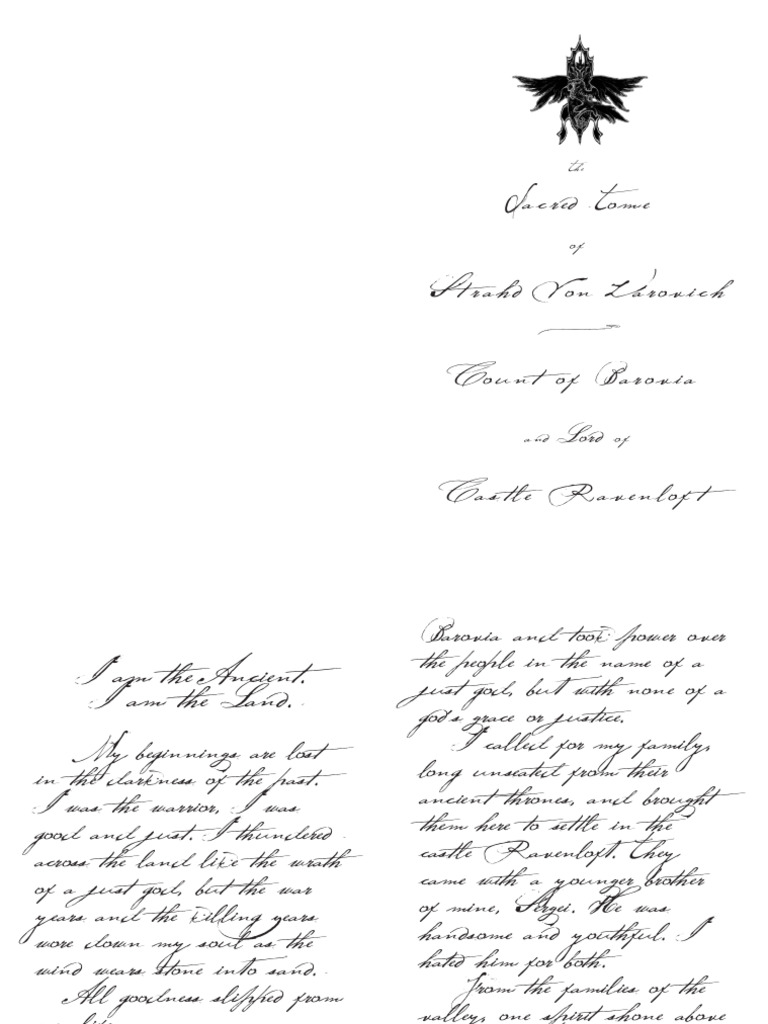 the
Sacred Tome
of
Strahd Von Zarovich
Count of Barovia
and Lord of
Castle Ravenloft
I am the Ancient.
I am the Land.
My beginnings are lost
in the darkness of the past.
I was the warrior, I was
good and just. I thundered
across the land like the wrath
of a just god, but the war
years and the killing years
wore down my soul as the
wind wears stone into sand.
All goodness slipped from
life
Barovia and took power over
the people in the name of a
just god, but with none of a
god's grace or justice.
I called for my family,
long unseated from their
ancient thrones, and brought
them here to settle in the
castle Ravenloft. They
came with a younger brother
of mine, Sergei. He was
handsome and youthful. I
hated him for both.
From the families of the
valley, one spirit shone above